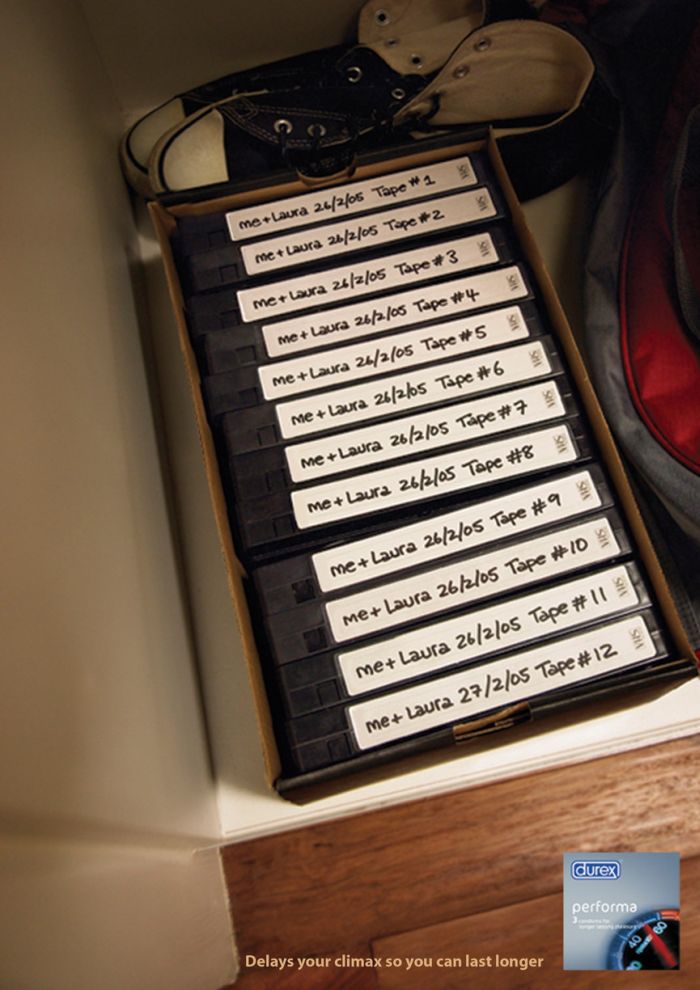 me + Laura 26/2/05 Tape #1 VHS
me + Laura 26/2/05 Tape #2 VHS
me + Laura 26/2/05 Tape #3 VHS
me + Laura 26/2/05 Tape #4 VHS
me + Laura 26/2/05 Tape #5 VHS
me + Laura 26/2/05 Tape #6 VHS
me + Laura 26/2/05 Tape #7 VHS
me + Laura 26/2/05 Tape #8 VHS
me + Laura 26/2/05 Tape #9 VHS
me + Laura 26/2/05 Tape #10 VHS
me + Laura 26/2/05 Tape #11 VHS
me + Laura 27/2/05 Tape #12 VHS
durex
performa
3 condoms for
longer lasting pleasure
40
60
Delays your climax so you can last longer